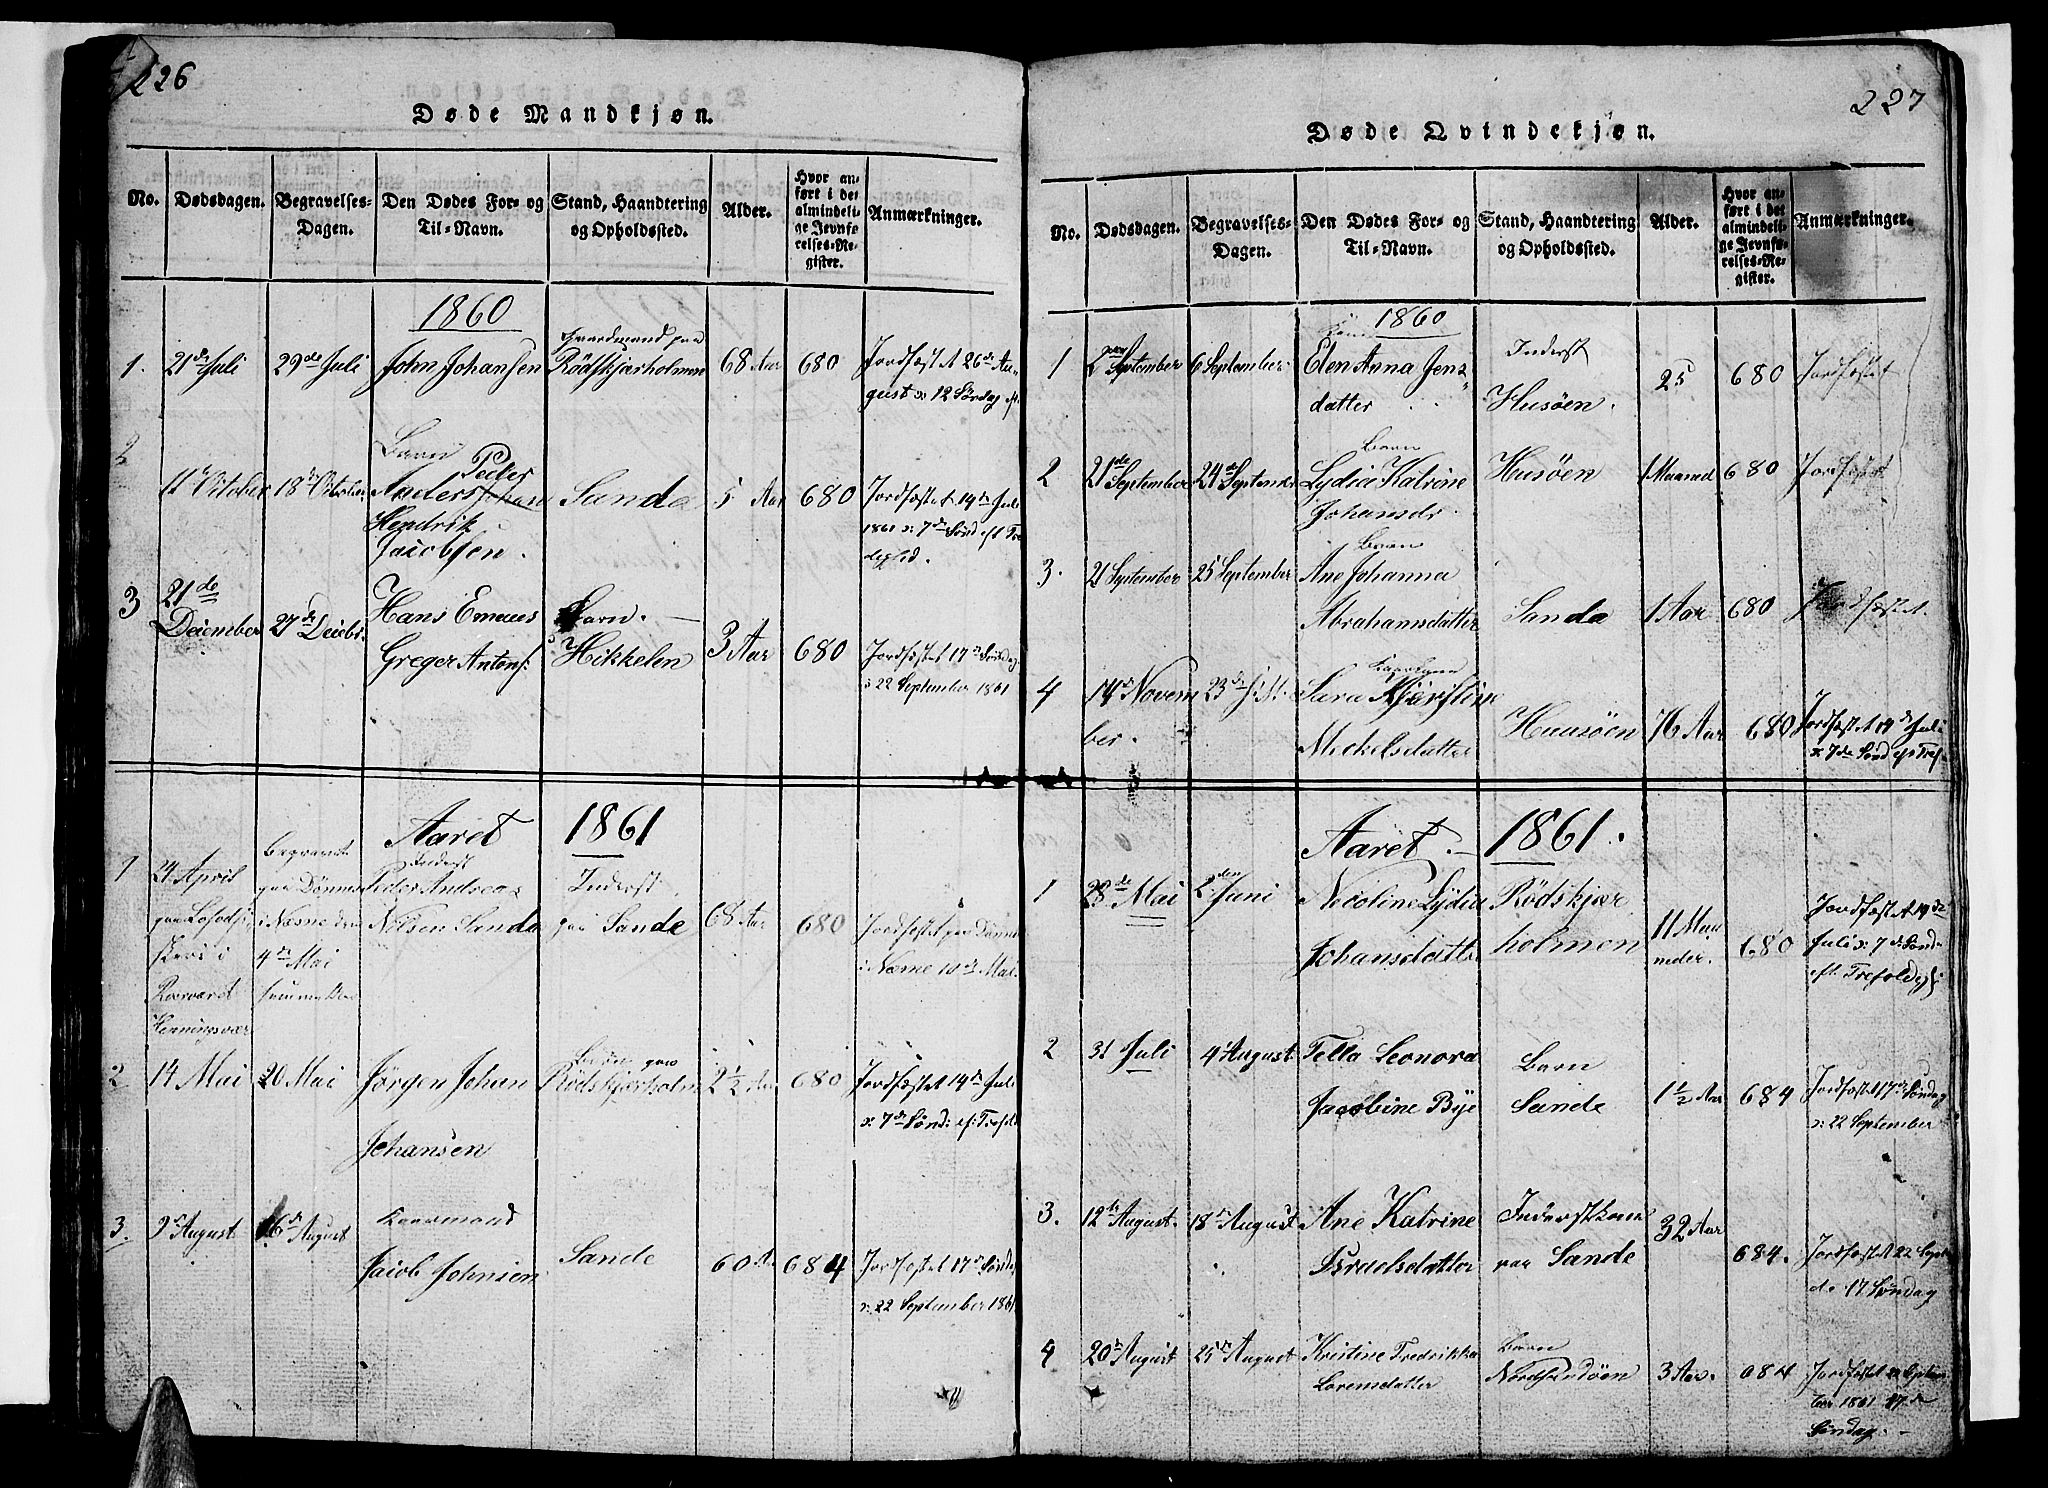 226
Døde Mandkjøn.
No.
Dødsdagen.
Begravelses-
Dagen.
Den Dødes For- og
Til-Navn.
Stand, Haandtering
og Opholdssted.
Alder.
Hvor an-
ført i det
almindeli-
ge Jevnfø-
relses-Re-
gister.
Anmærkninger.
1860
1.
21de Juli
29de Juli
John Johansen
Gaardmand paa
Rödskjærholmen
68 Aar
680
Jordfæstet 26de Au-
gust 12 Søndag eft
2
11te October
18de October
Barn
Peder
Anders Johan
Hendrik
Jacobsen.
Sanda
5 Aar
680
Jordfæstet 14de Juli
1861 7de Sönd eft Tre
3
21de
December
27de Decbr.
Hans Emaus
Greger Antons:
Barn.
Hikkelen
3 Aar
680
Jordfæstet 17de Söndag
22 September 1861
Aaret 1861
1
24 April
paa
i
Henningsvær
Begravet
paa Dönnes
i Næsne den
4de Mai
Inderst
Peder Andreas
Nilsen Sande
Inderst
paa Sande
68 Aar
680
Jordfæstet paa Dönnes
i Næsne Mai
2
14 Mai
20 Mai
Jörgen Johan
Johansen
Barn paa
Rödskjærholm
2 1/2 Aar
680
Jordfæstet 14de Juli
7de Sönd: ef: Trefold
3.
9de August
16de August
Kaarmand
Jacob Johnsen
Sande
60 A
684
Jordfæstet 17de Söndag
22 September 1861
227
Døde Qvindekjøn.
No.
Dødsdagen.
Begravelses-
Dagen.
Den Dødes For- og
Til-Navn.
Stand, Haandtering
og Opholdssted.
Alder.
Hvor an-
ført i det
almindeli-
ge Jevnfø-
relses-Re-
gister.
Anmærkninger.
1860
1
September
6 September
Elen Anna Jens-
datter
Inderst
Husöen.
25
680
Jordfæstet
2
21de
September
24de September
Barn
Lydia Katrine
Johansdr.
Husöen
1 Maaned
680
Jordfæstet
3.
21 September
25 September
Barn
Ane Johanna
Abrahamsdatter
Sanda
1 Aar
680
Jordfæstet.
4
14de Novem
ber.
23de
Sara Kjerstine
Mickelsdatter
Huusöen
76 Aar
680
Jordfæstet 14de Juli
7de Sönd eft Tref.
Aaret 1861.
1
28de Mai
2den Juni
Nicoline Lydia
Johansdatter
Rödskjær
holmen
11 Maa
neder.
680
Jordfæstet 14de
Juli 7de Sönd
eft. Trefoldigh
2
31 Juli
4 August
Tella Leonora
Jacobine Bye
Barn
Sande
1 1/2 Aar
684
Jordfæstet 17de Söndag
22 September
3.
12te August.
18de August
Ane Katrine
Israelsdatter
Inderstkone
paa Sande
32 Aar
684.
Jordfæstet 22 Sept
17 Söndag
4
20de August
25de August
Kristine Fredrikka
Lorensdatter
Barn
Nordsandöen
3 Aar.
684
Jordfæstet 22 Septem
ber 1861 17de
Söndag.